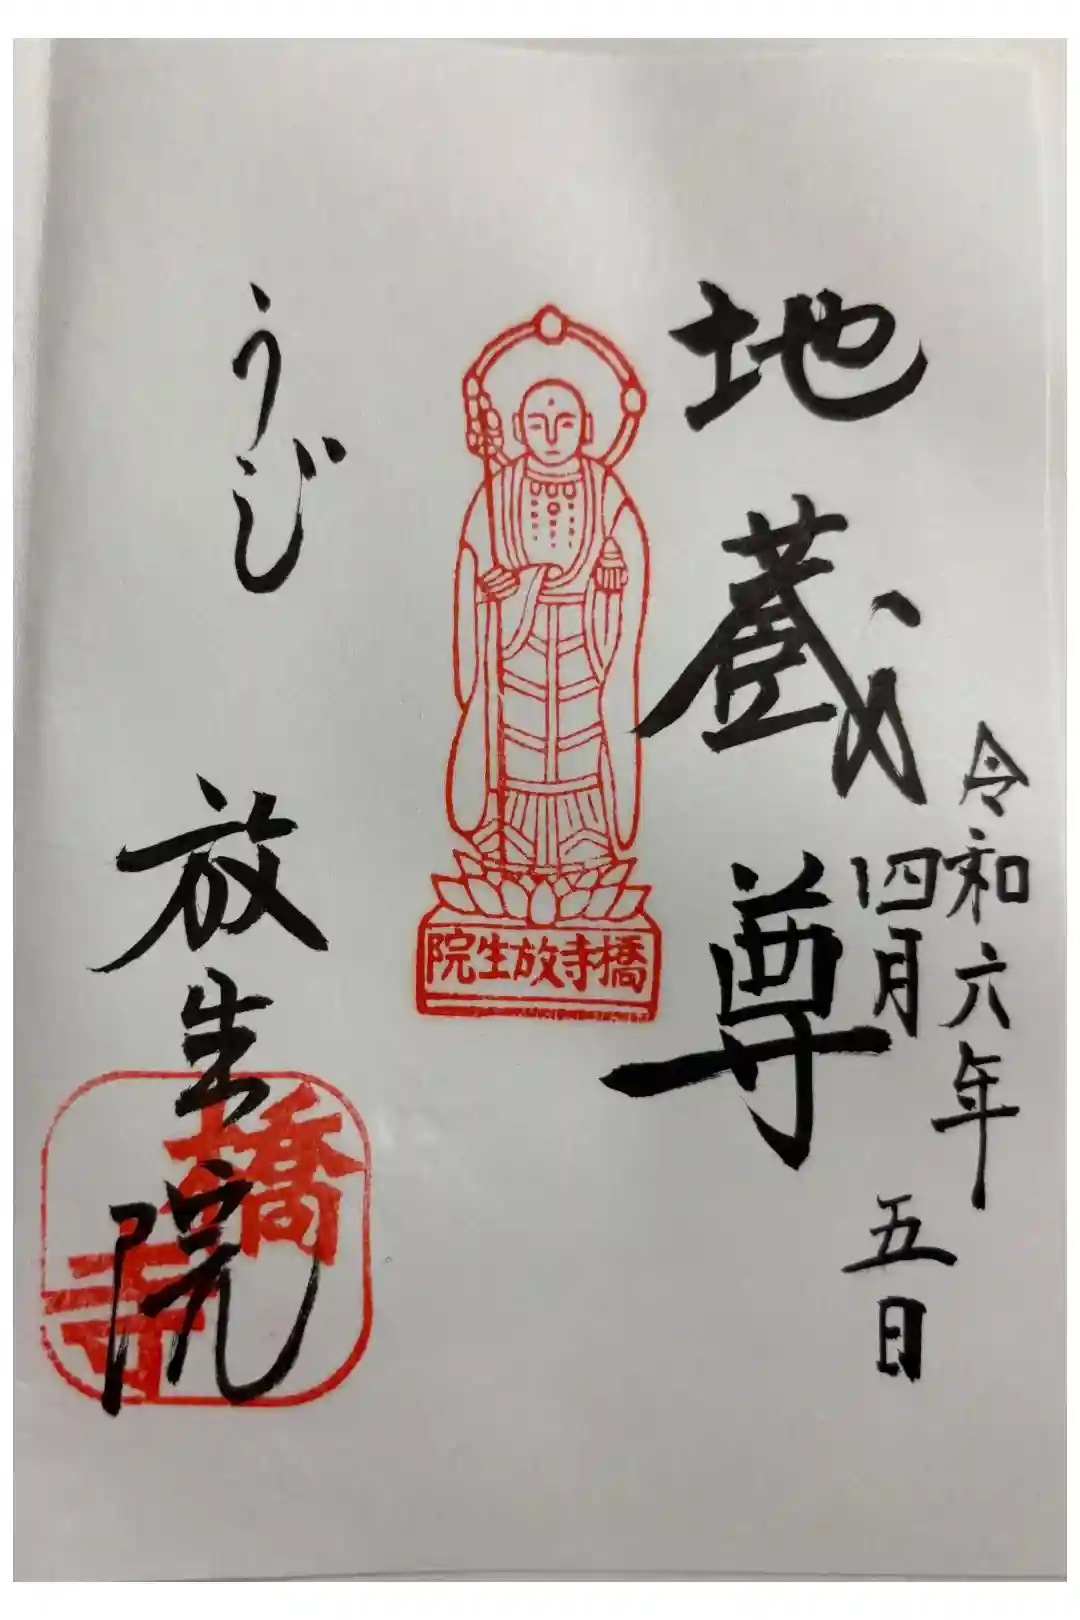 地蔵尊
令和六年
四月五日
橋寺放生院
うじ 放生院
橋寺